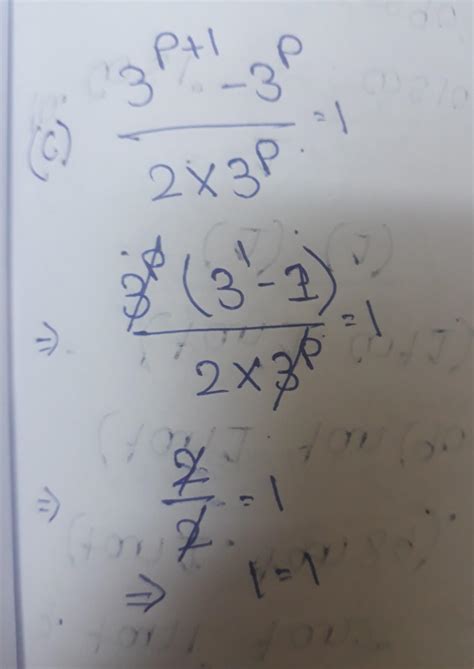 (c) (3^(p+1) - 3^p) / (2 × 3^p) = 1
⇒ 3^p (3^1 - 1) / (2 × 3^p) = 1
⇒ 2/2 = 1
⇒ 1 = 1